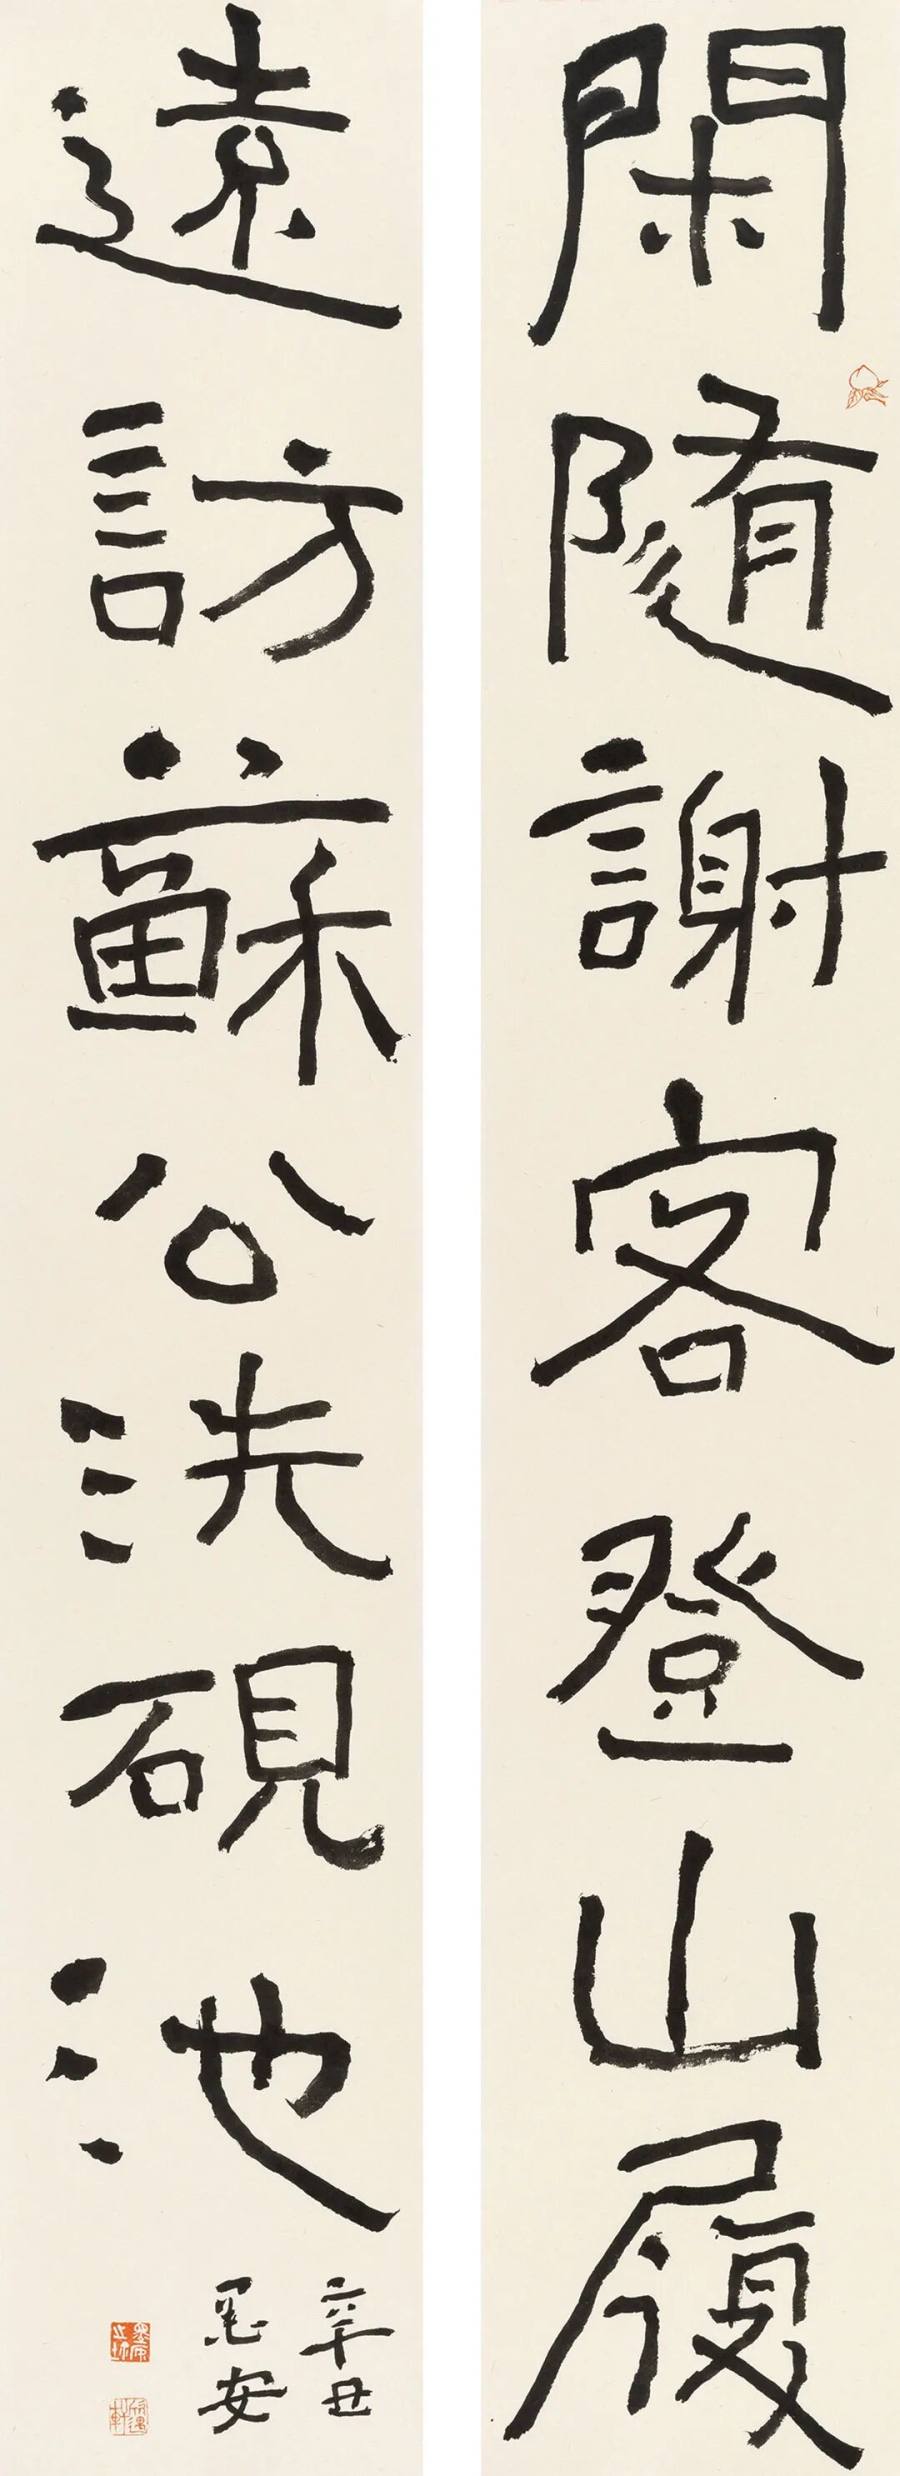 閑隨謝客登山履
遠訪蘇公洗硯池
辛丑
思安